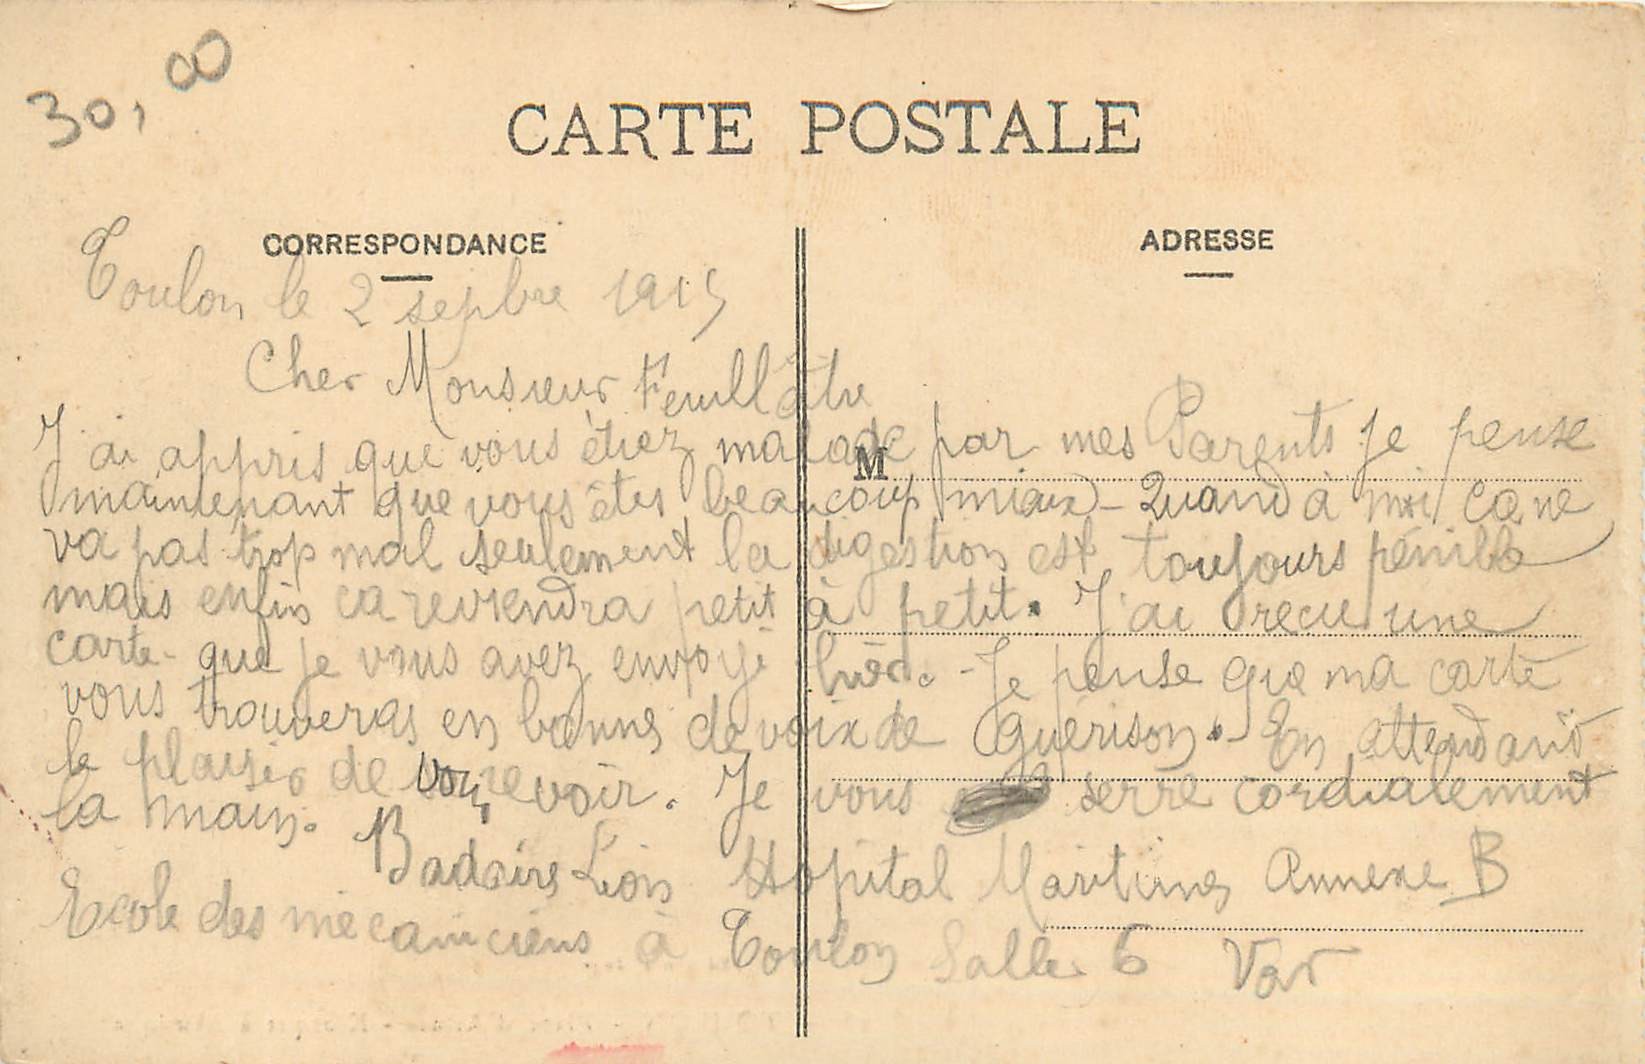 30,00
CARTE POSTALE
CORRESPONDANCE
ADRESSE
M
Toulon le 2 sepbre 1915
Cher Monsieur Feuillâtre
J'ai appris que vous êtiez malade par mes Parents je pense
maintenant que vous êtes beaucoup miaux - Quand à moi ca ne
va pas trop mal seulement la digestion est toujours penible
mais enfin ca reviendra petit à petit. J'ai recu une
carte - que je vous avez envoyé hièr. - Je pense que ma carte
vous trouveras en bonne de voix de Guérison. - En attendant
le plaisir de vous revoir. Je vous serre cordialement
la main. Badaire Léon Hopital Maritime Annexe B
Ecole des mécaniciens à Toulon Salle 6 Var